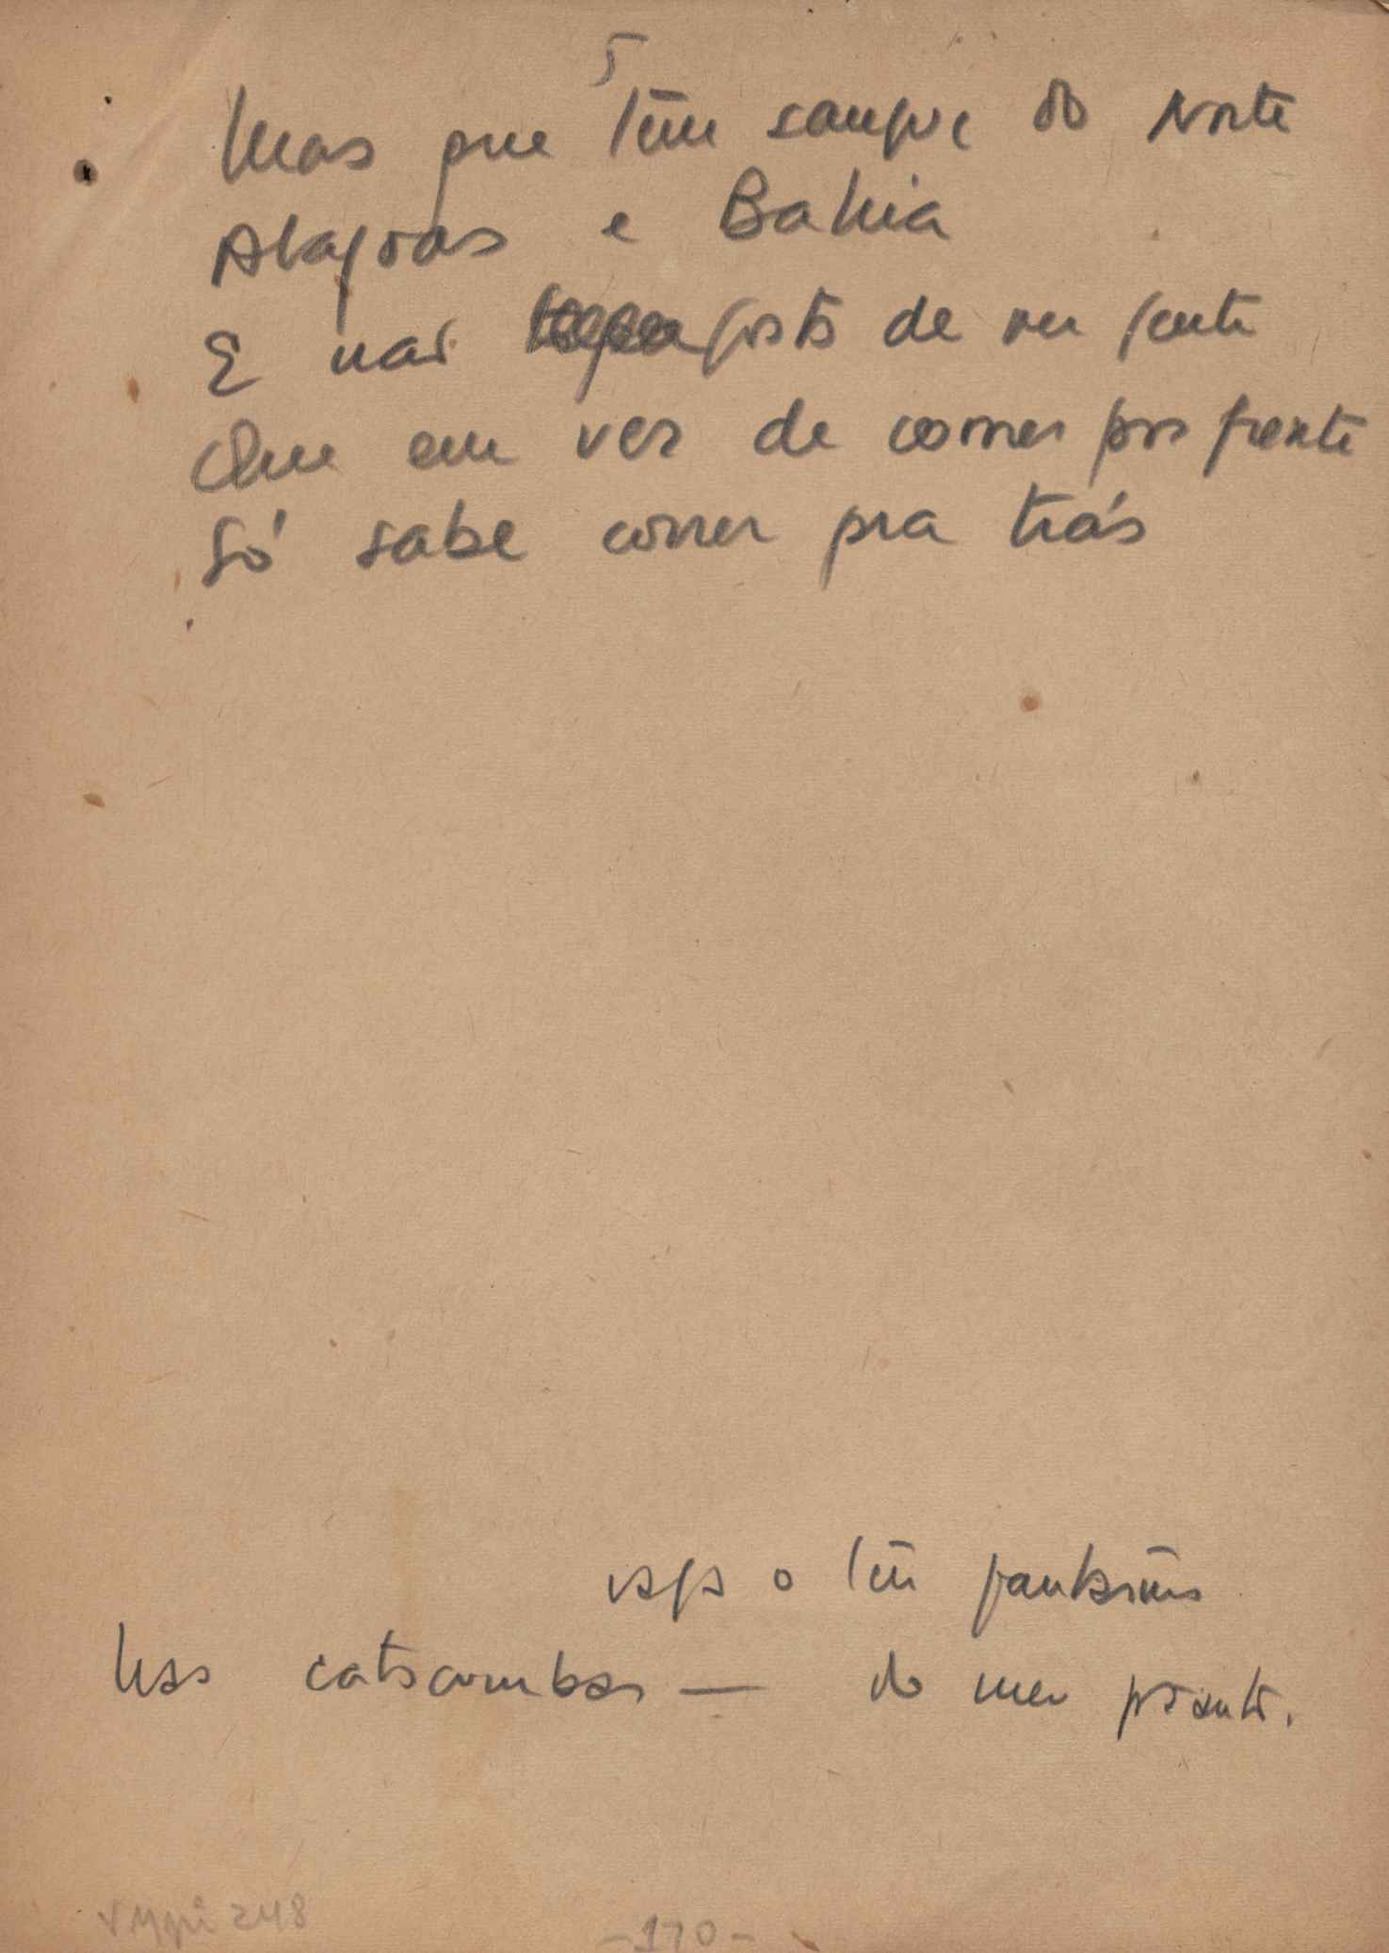 5
Mas que tem sangue do Norte
Alagoas e Bahia
E não gosta de ver gente
Que em vez de correr pra frente
Só sabe correr pra trás
vejo o teu fantasma
Nas catacumbas — do meu pranto.
248
-170-